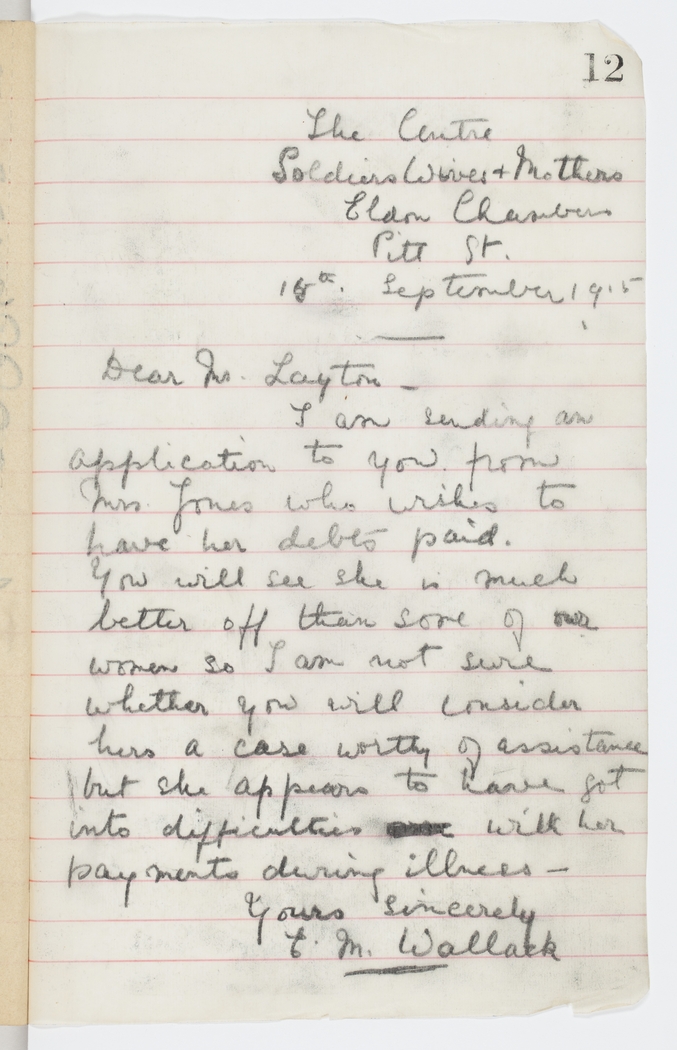 12
The Centre
Soldiers Wives + Mothers
Eldon Chambers
Pitt St.
18th. September 1915
Dear Mr. Layton –
I am sending an
application to you from
Mrs. Jones who wishes to
have her debts paid.
You will see she is much
better off than some of our
women so I am not sure
whether you will consider
hers a case worthy of assistance
but she appears to have got
into difficulties with her
payments during illness –
Yours sincerely
E. M. Wallack